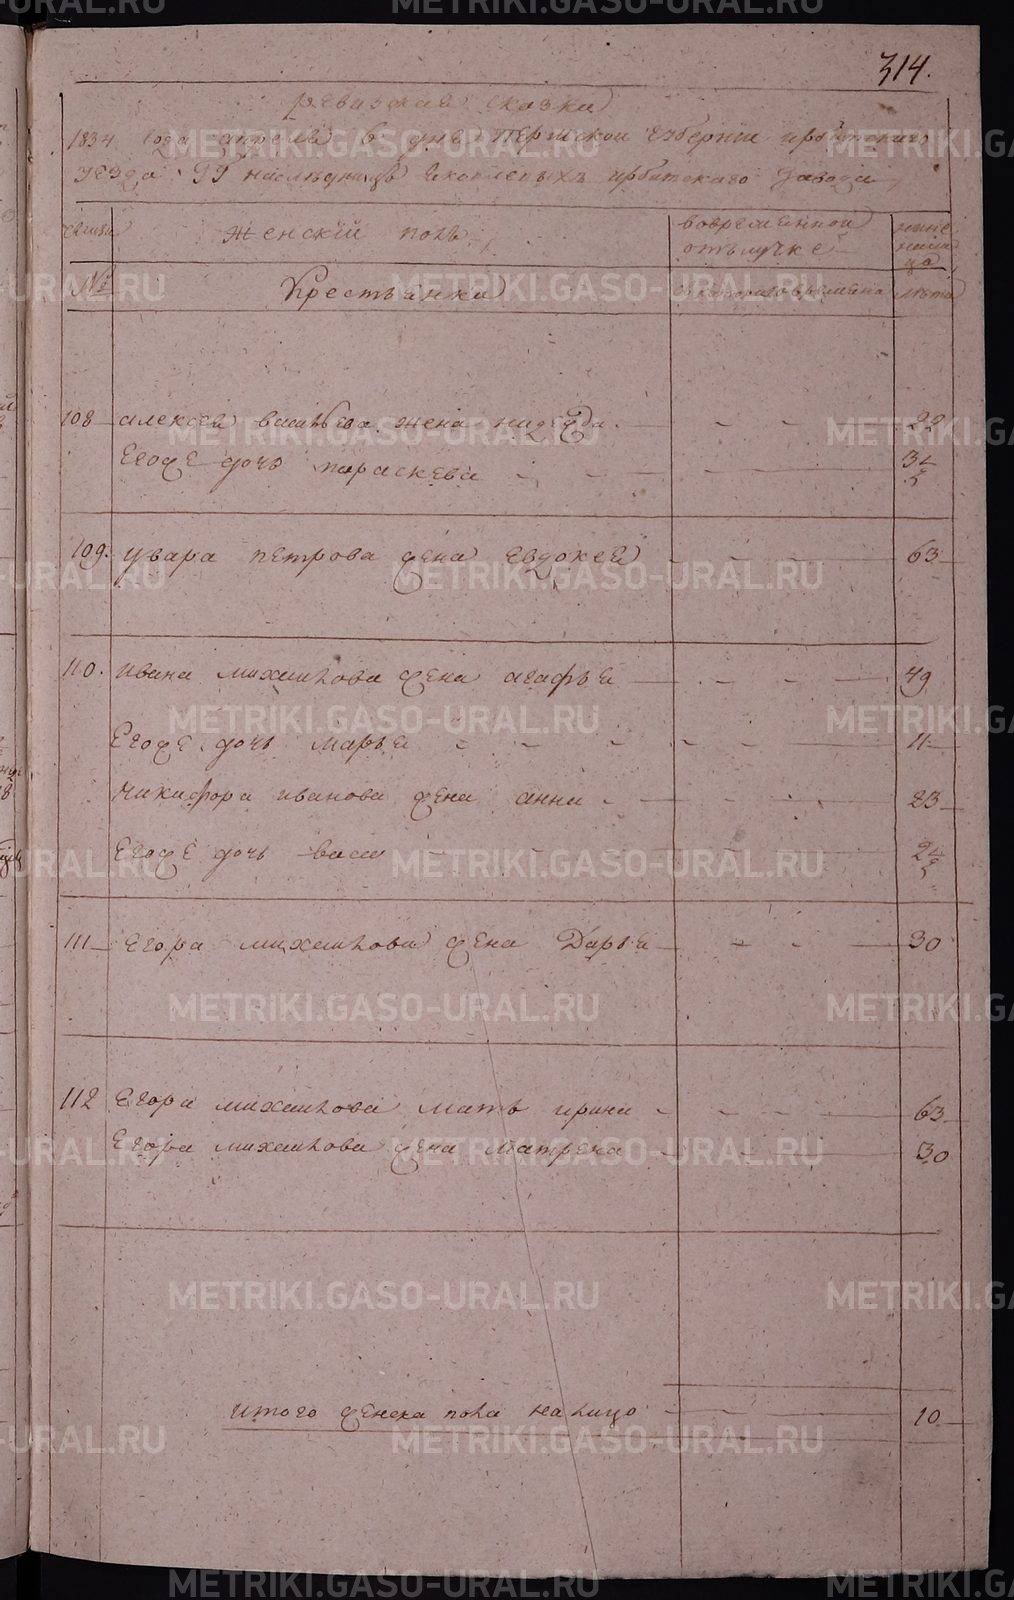 314.
ревизская сказка
1834 года апреля 6 дня Пермской губернии ирбитскаго
уезда ГГ наследницъ Яковлевыхъ ирбитскаго завода
семьи
Женскій полъ
вовременной отълучке
ныне налицо
№
Крестьянки
скотораго времена
лета
108 алексея васильева жена надежда - - - 22
Егоже дочь параскева - - - 3½
109. увара петрова жена Евдокея - - - 63
110. ивана михаилова жена агафья - - - 49
Егоже дочь марья - - - 11
никифора иванова жена анна - - - 23
Егоже дочь васса - - - 2½
111 Егора михаилова жена Дарья - - - 30
112 Егора михаилова мать ирина - - - 63
Егора михаилова жена матрена - - - 30
итого женска пола налицо - - - 10
METRIKI.GASO-URAL.RU